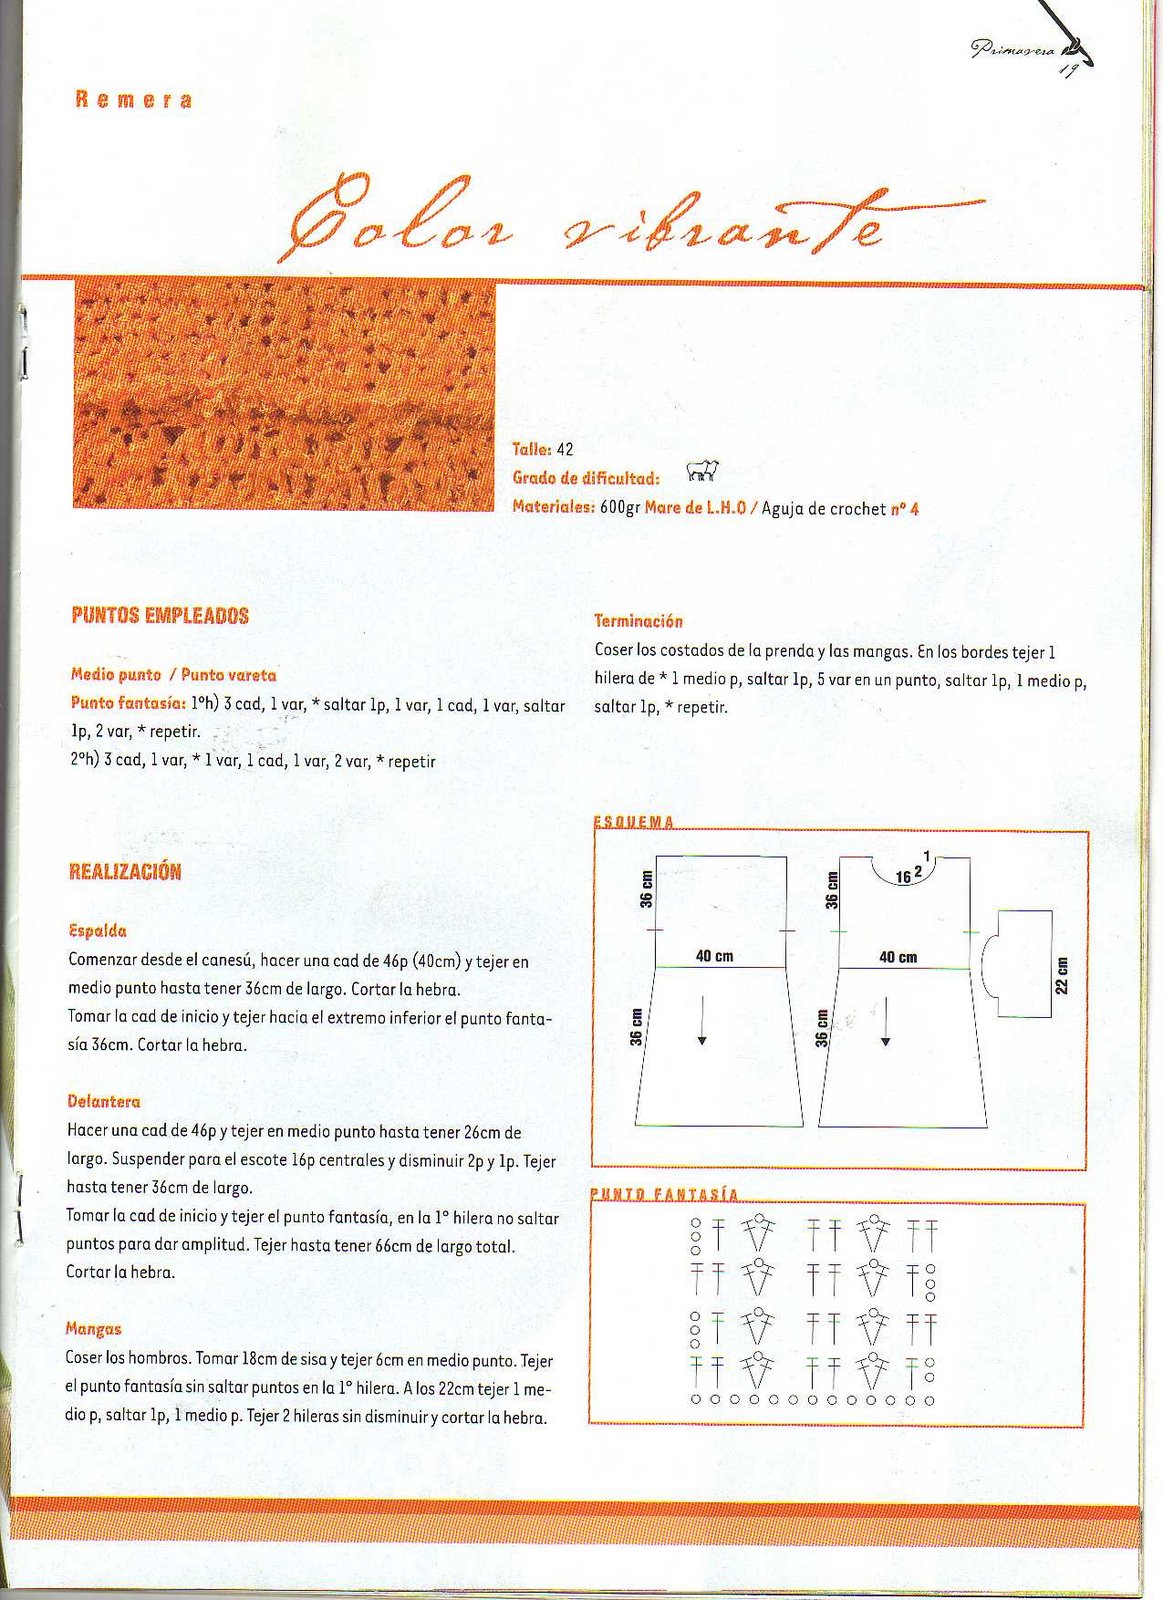 Primavera
19
Remera
Color vibrante
Talle: 42
Grado de dificultad:
Materiales: 600gr Mare de L.H.O / Aguja de crochet nº 4
PUNTOS EMPLEADOS
Medio punto / Punto vareta
Punto fantasía: 1ºh) 3 cad, 1 var, * saltar 1p, 1 var, 1 cad, 1 var, saltar
1p, 2 var, * repetir.
2ºh) 3 cad, 1 var, * 1 var, 1 cad, 1 var, 2 var, * repetir
REALIZACIÓN
Espalda
Comenzar desde el canesú, hacer una cad de 46p (40cm) y tejer en
medio punto hasta tener 36cm de largo. Cortar la hebra.
Tomar la cad de inicio y tejer hacia el extremo inferior el punto fanta-
sía 36cm. Cortar la hebra.
Delantera
Hacer una cad de 46p y tejer en medio punto hasta tener 26cm de
largo. Suspender para el escote 16p centrales y disminuir 2p y 1p. Tejer
hasta tener 36cm de largo.
Tomar la cad de inicio y tejer el punto fantasía, en la 1º hilera no saltar
puntos para dar amplitud. Tejer hasta tener 66cm de largo total.
Cortar la hebra.
Mangas
Coser los hombros. Tomar 18cm de sisa y tejer 6cm en medio punto. Tejer
el punto fantasía sin saltar puntos en la 1º hilera. A los 22cm tejer 1 me-
dio p, saltar 1p, 1 medio p. Tejer 2 hileras sin disminuir y cortar la hebra.
Terminación
Coser los costados de la prenda y las mangas. En los bordes tejer 1
hilera de * 1 medio p, saltar 1p, 5 var en un punto, saltar 1p, 1 medio p,
saltar 1p, * repetir.
ESQUEMA
36 cm
40 cm
36 cm
36 cm
16 2 1
40 cm
36 cm
22 cm
PUNTO FANTASÍA